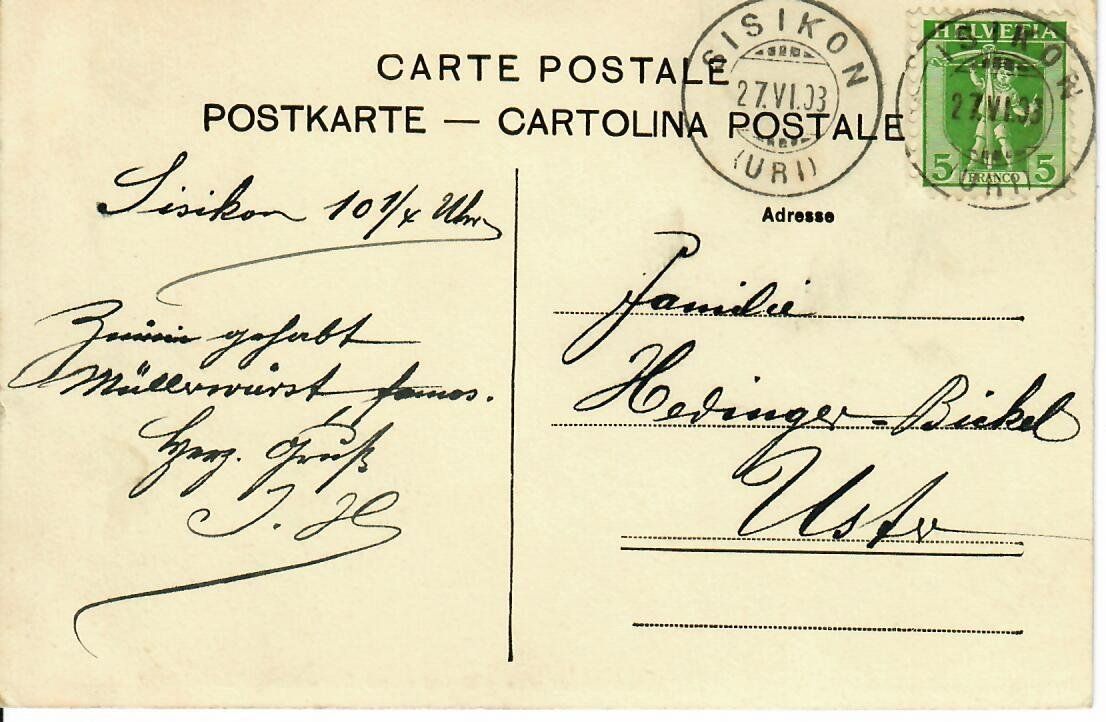 CARTE POSTALE
POSTKARTE — CARTOLINA POSTALE
SISIKON
27.VI.03
(URI)
HELVETIA
5 FRANCO 5
SISIKON
27.VI.03
(URI)
Adresse
Sisikon 10 1/4 Uhr
gehabt
Müllerwürst famos.
Herz. Gruß
J. H
Familie
Hedinger-Bickel
Uster